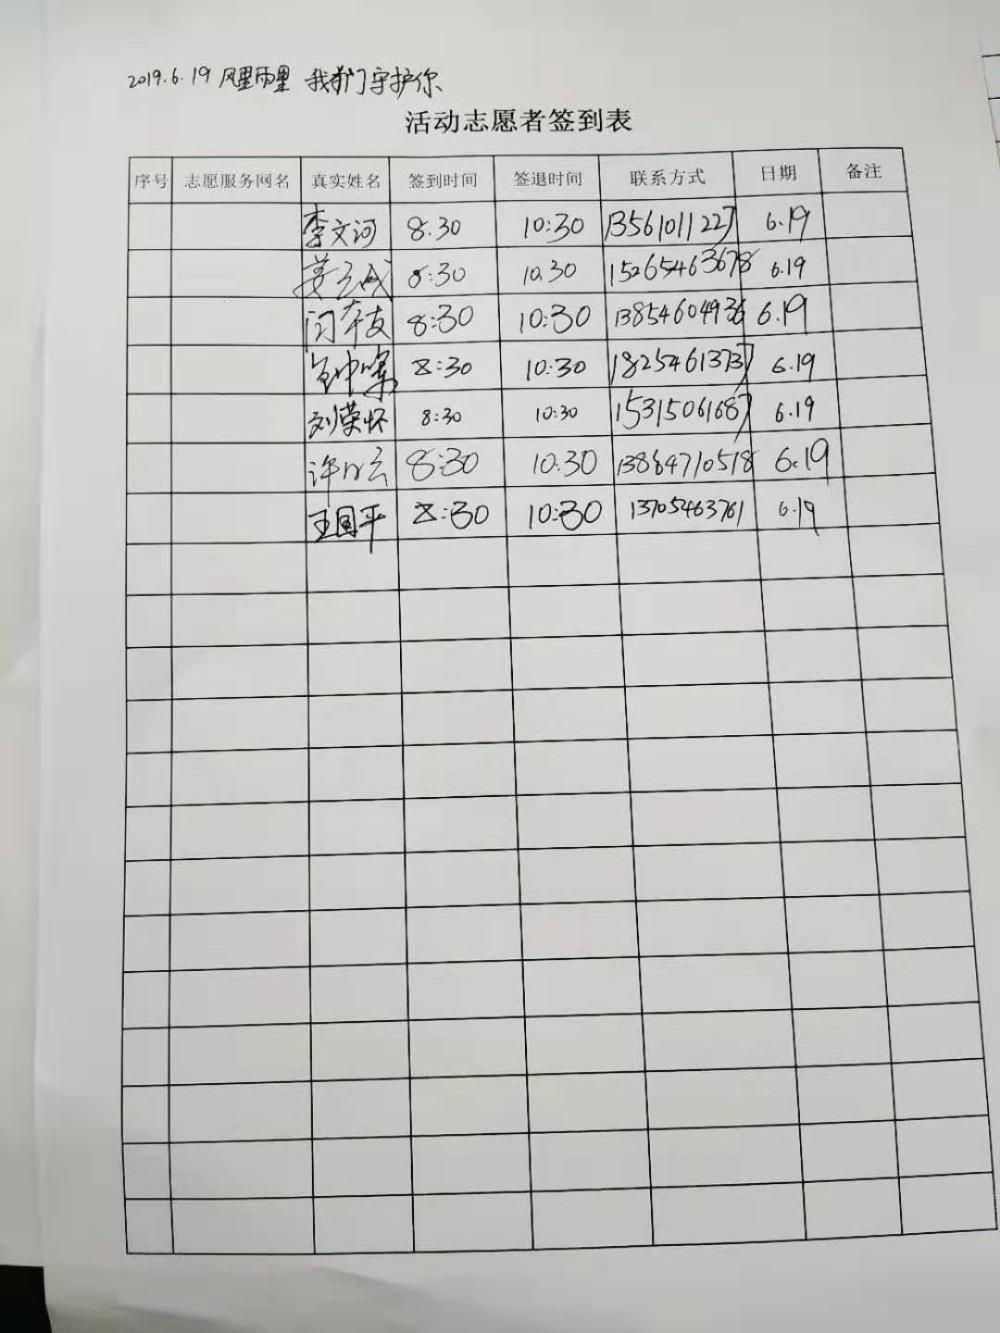 2019.6.19 风里雨里 我们守护你
活动志愿者签到表
序号 志愿服务网名 真实姓名 签到时间 签退时间 联系方式 日期 备注
李文河 8.30 10:30 13561011227 6.19
姜立成 8:30 10.30 15265463678 6.19
闫本友 8:30 10:30 13854604936 6.19
8:30 10.30 18254613737 6.19
刘荣怀 8:30 10:30 15315061687 6.19
许 云 8:30 10.30 13864710518 6.19
王国平 8:30 10:30 13705463761 6.19